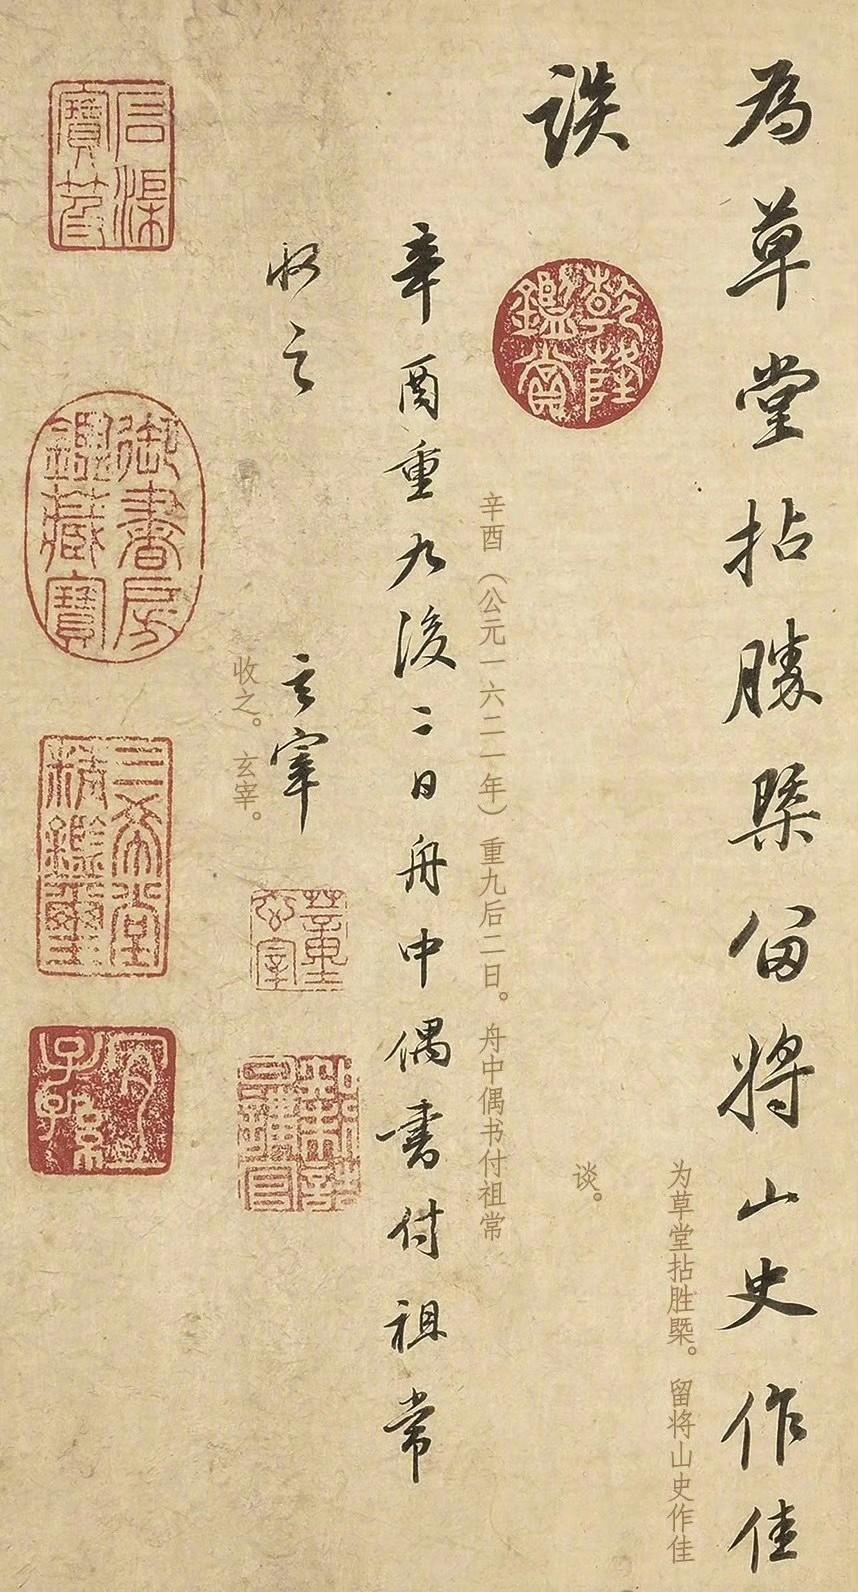 为草堂拈勝槩留将山史作佳
谈
为草堂拈胜槩。留将山史作佳
谈。
乾隆鑑賞
辛酉重九後二日舟中偶書付祖常
辛酉（公元一六二一年）重九后二日。舟中偶书付祖常
收之
玄宰
收之。玄宰。
董玄宰
石渠寶笈
御書房鑑藏寶
三希堂精鑑璽
宜子孫